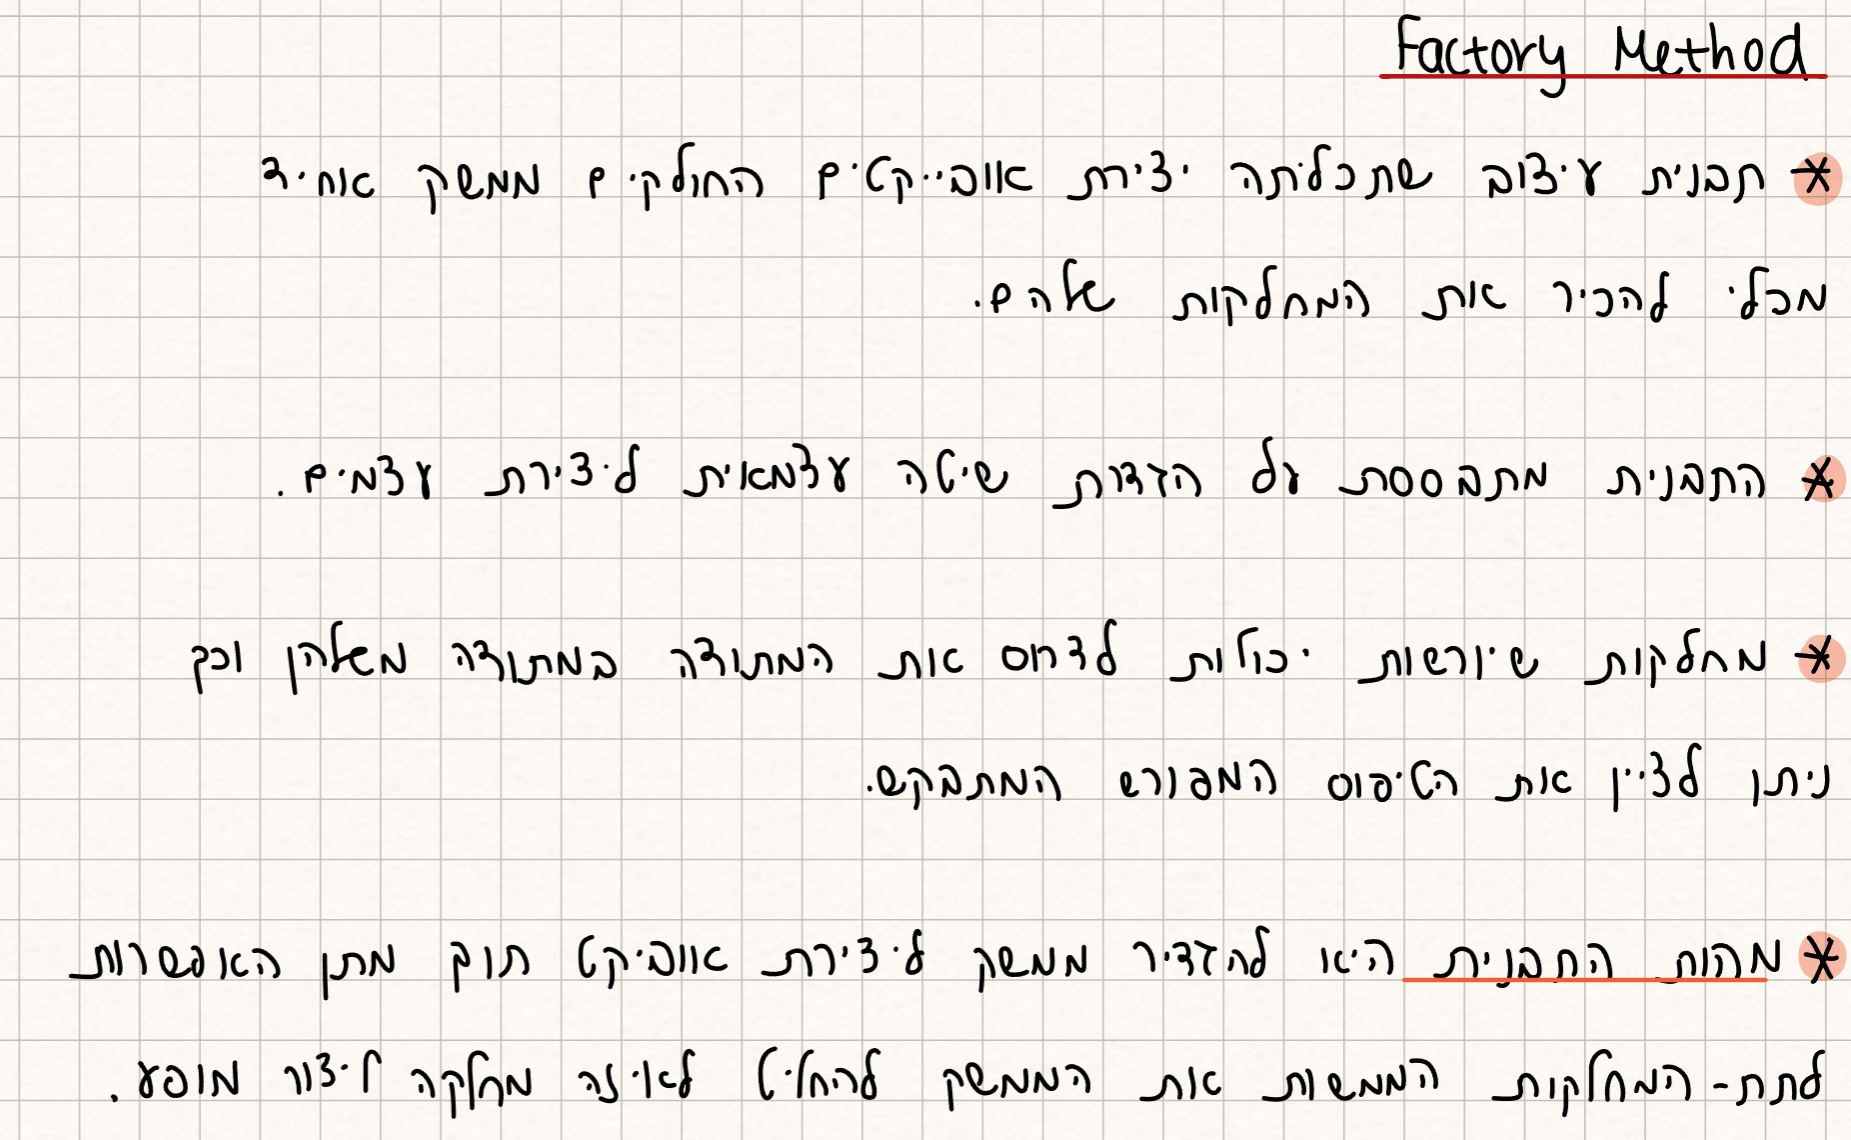 Factory Method
* תבנית עיצוב שתכליתה יצירת אובייקטים החולקים ממשק אחיד
מבלי להכיר את המחלקות שלהם.
* התבנית מתבססת על הגדרת שיטה עצמאית ליצירת עצמים.
* מחלקות שיורשות יכולות לדרוס את המתודה במתודה משלהן וכך
ניתן לציין את הטיפוס המפורש המתבקש.
* מהות התבנית היא להגדיר ממשק ליצירת אוביקט תוך מתן האפשרות
לתת-המחלקות הממשות את הממשק להחליט לאיזה מחלקה ליצור מופע.